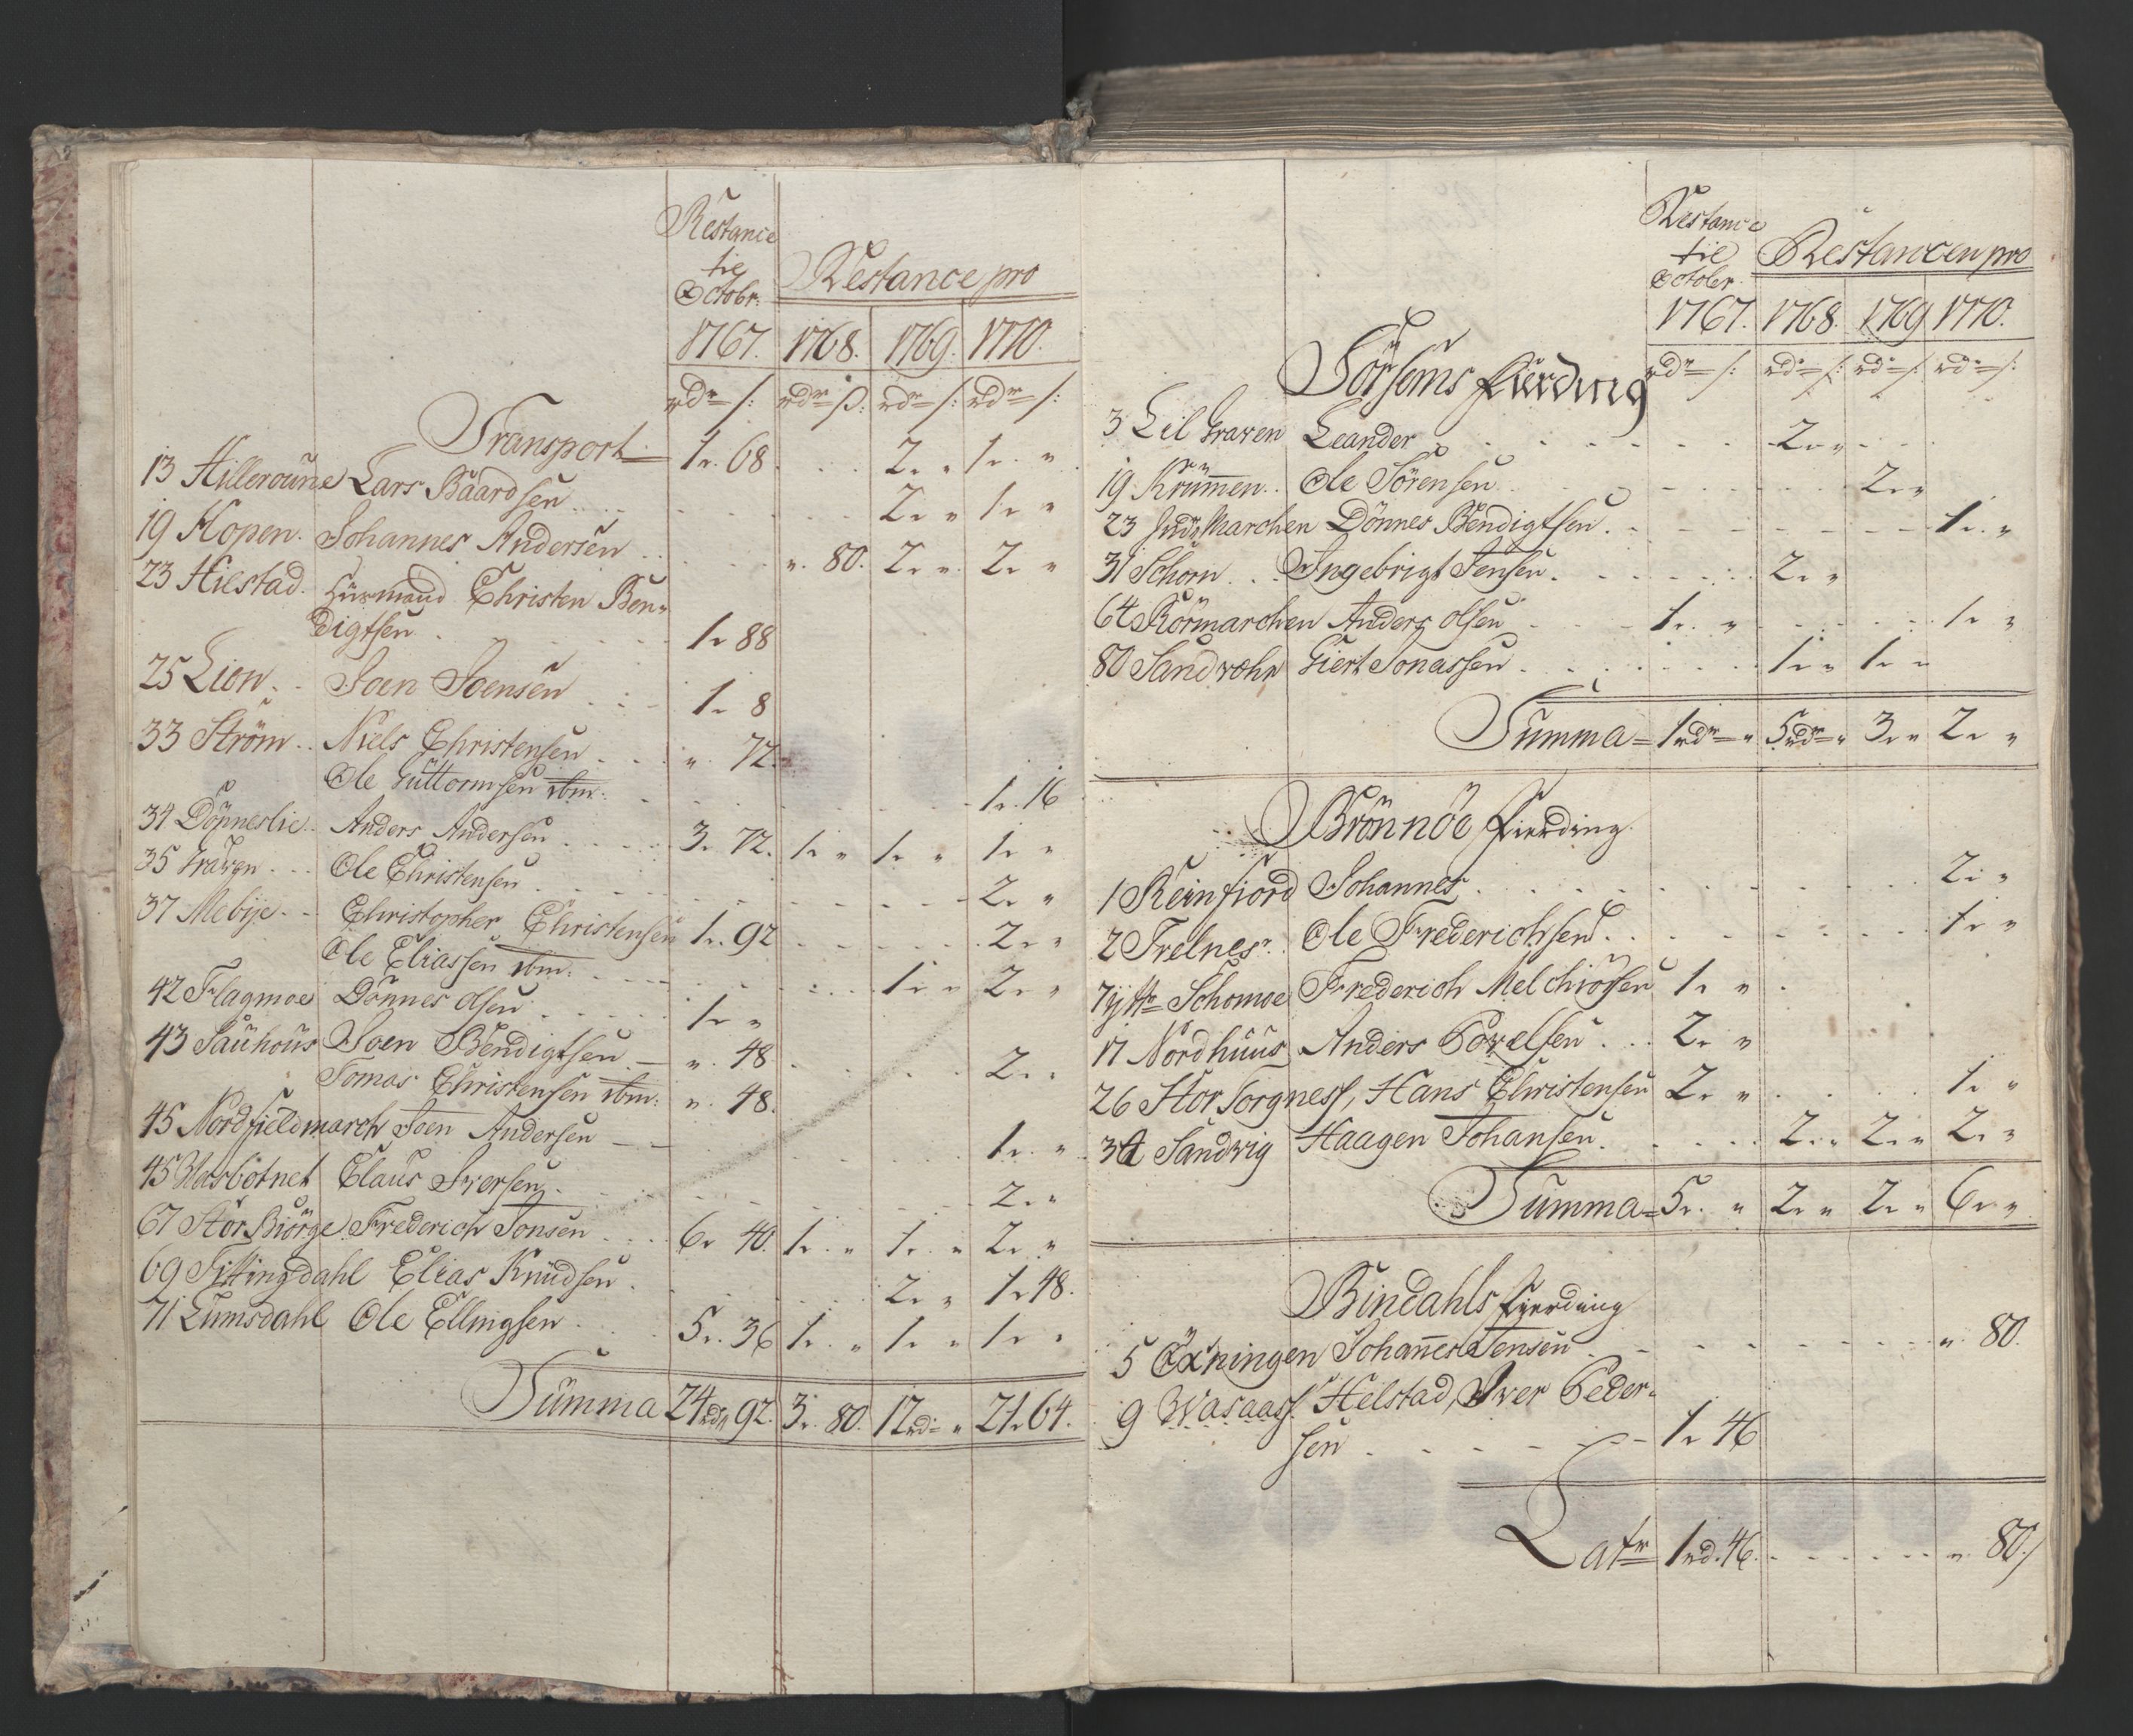 Restance
til
Octobr:
Restance pro
1767. 1768. 1769. 1770.
rdr /: rdr ß: rdr /: rdr /:
Transport 1r. 68 . . . 2r. " 1r. "
13 Hilleroune Lars Baardsen . . 2r. " 1r. "
19 Hopen. Johannes Andersen . . ". 80. 2r. ". 2r. "
23 Hilstad. Huusmand Christen Ben-
digtsen . . . 1r 88
25 Lion. . Joen Joensen . . . 1r. 8
33 Ström. . Niels Christensen . . . ". 72.
Ole Guttormsen ibm: . . . 1r. 16
34 Dönneslie. . Anders Andersen . . . 3r. 72. 1r. " 1r. " 1r. "
35 Graven . . . Ole Christensen . . . 2r. "
37 Mebÿe . . Christopher Christensen 1r. 92 . . . 2r. "
Ole Eliassen ibm. . . . 1r. " 2r. "
42 Flagmoe Dönnes Olsen . . . 1r. "
43 Sauhous Joen Bendigtsen . ". 48 . . . 2r. "
Tomas Christensen ibm: ". 48.
45 Nordfieldmarch Joen Andersen . . . 1r. "
45 Hasbotnet Claus Iversen . . . 2r. "
67 Stor Biörge Frederich Jonsen . . . 6r 40. 1r. " 1r. " 2r. "
69 Fittingdahl Elias Knudsen . . . 2r. " 1r 48.
71 Lumsdahl Ole Ellingsen . . . 5r. 36 1r. " 1r. " 1r. "
Summa 24rdr 92. 3r. 80. 12rdr " 21r 64.
Restance
til
October.
Restancen pro
1767. 1768. 1769 1770.
rdr /: rdr /: rdr /: rdr /:
Sörsems fierding
3 Lil Graven Leander . . . 2r. " . . .
19 Krümmen. . Ole Sörensen . . . 2r. "
23 Indr Marchen Dönnes Bendigtsen . . . 1r. "
31 Schorn . . . Ingebrigt Jensen . . . 2r. "
64 Rörmarchen Anders Olsen . . . 1r. " . . . 1r. "
80 Sandvæhr Giert Jonassen . . . 1r. " 1r. "
Summa = 1rdr " 5rdr " 3r. " 2r. "
Brönnöe fierding.
1 Reinfiord Johannes . . . 2r. "
2 Trelnes. . Ole Frederichsen . . . 1r. "
7 ÿttr Schomoe Frederich Melchiorsen 1r. " .
17 Nordhuus Anders Povelsen . . . 2r. "
26 Stor Torgness, Hans Christensen 2r. " . . . 1r. "
30 Sandvig Haagen Johansen . . . 2r. " 2r. " 2r. "
Summa = 5r. " 2r. " 2r. " 6r. "
Bindahls fierding
5 Öxningen Johannes Jensen . . . ". 80.
9 Wasaass. Helstad, Iver Peder-
sen . . . 1r. 46
Latr 1rd. 46. . . . ". 80./